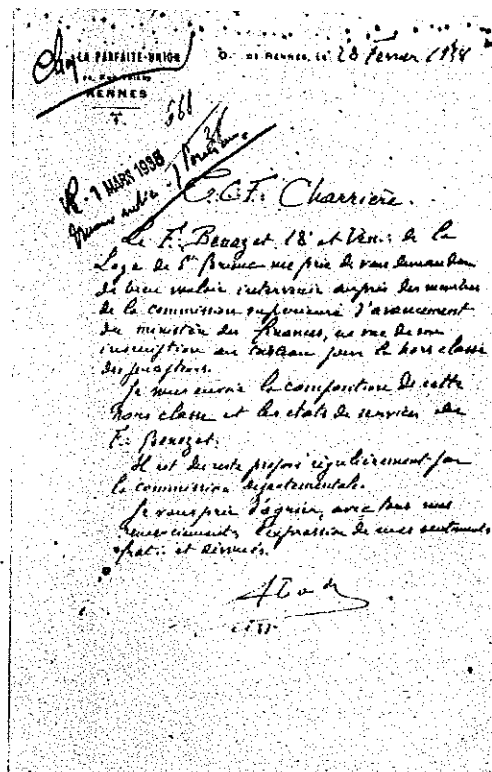 LA PARFAITE-UNION
RENNES
O∴ DE RENNES, LE 28 Fevrier 1938
568
R - 1 MARS 1938
T.C.F∴ Charrière.
Le F∴ Benazet 18e et Ven∴ de la
Loge de St Brieuc me prie de vous demander
de bien vouloir intervenir auprès des membres
de la commission supérieure d'avancement
du ministère des finances, en vue de son
inscription au tableau pour la hors classe
des percepteurs.
Je vous envoie la composition de cette
hors classe et les états de services du
F∴ Benazet.
Il est du reste proposé régulièrement par
la commission départementale.
Je vous prie d'agréer, avec tous mes
remerciements, l'expression de mes sentiments
frat∴ et dévoués.